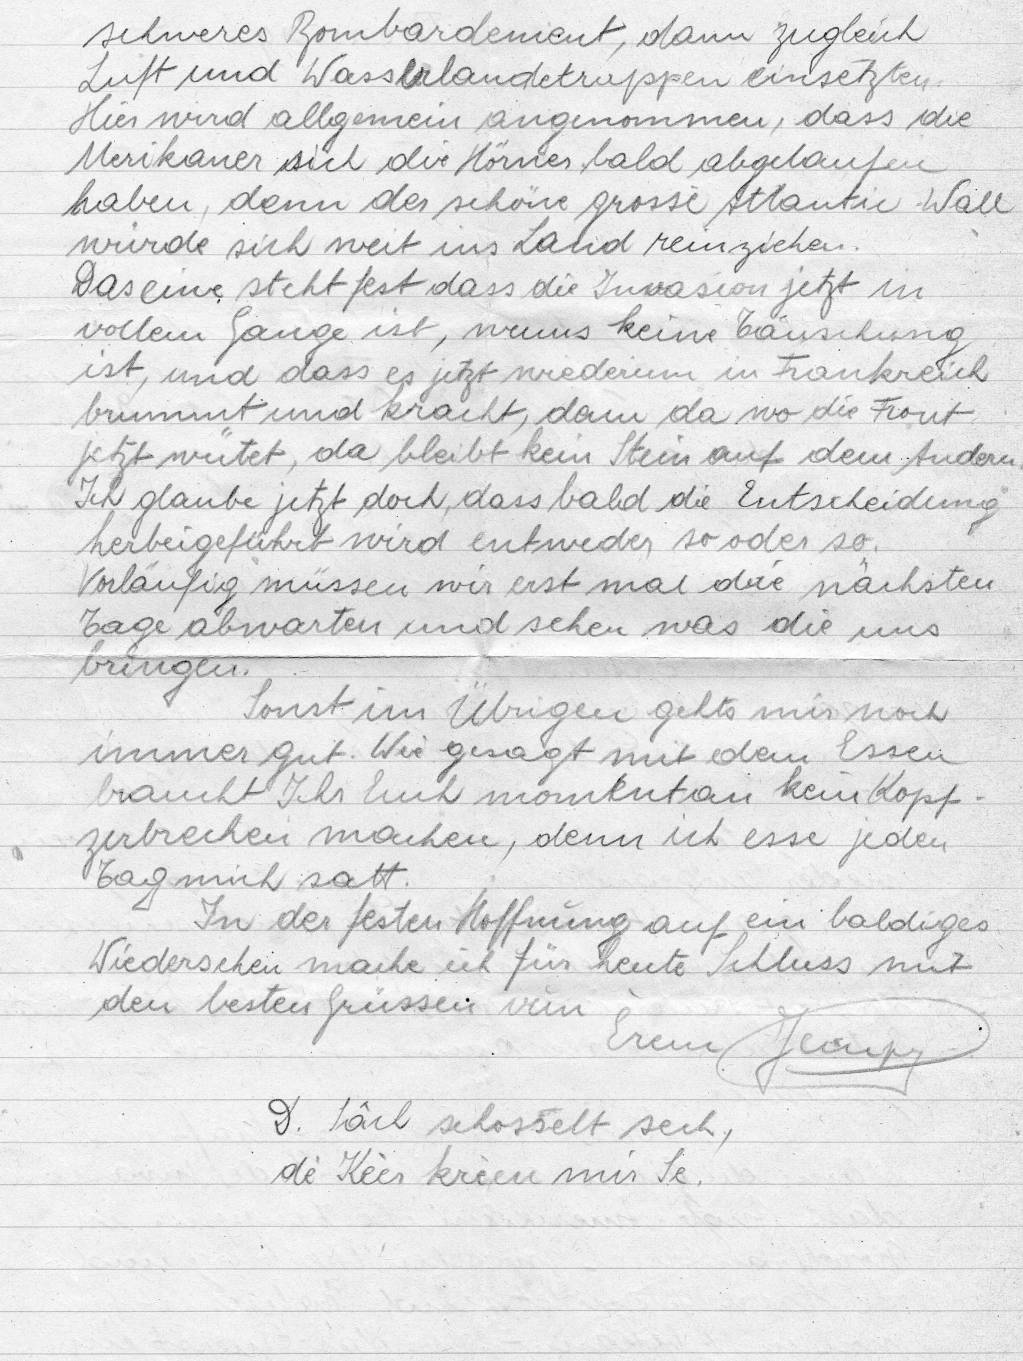 schweres Bombardement, dann zugleich
Luft und Wasserlandetruppen einsetzten.
Hier wird allgemein angenommen, dass die
Merikaner sich die Hörner bald abgelaufen
haben, denn der schöne grosse Atlantic-Wall
würde sich weit ins Land reinziehen.
Das eine steht fest dass die Invasion jetzt in
vollem Gange ist, wenns keine Täuschung
ist, und dass es jetzt wiederum in Frankreich
brummt und kracht, dann da wo die Front
jetzt wütet, da bleibt kein Stein auf dem Andern.
Ich glaube jetzt doch, dass bald die Entscheidung
herbeigeführt wird entweder so oder so.
Vorläufig müssen wir erst mal die nächsten
Tage abwarten und sehen was die uns
bringen.
Sonst im Übrigen gehts mir noch
immer gut. Wie gesagt mit dem Essen
braucht Ihr Euch momentan kein Kopf-
zerbrechen machen, denn ich esse jeden
Tag mich satt.
In der festen Hoffnung auf ein baldiges
Wiedersehen mache ich für heute Schluss mit
den besten Grüssen vun
Erem Jempy
D. Säil schosselt sech,
dé Kéer kréien mir Se.